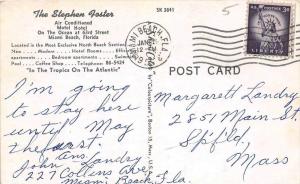 The Stephen Foster
SK 3841
Air Conditioned
Motel Hotel
On The Ocean at 63rd Street
Miami Beach, Florida
Located in the Most Exclusive North Beach Section
New Modern Hotel Rooms
efficiencies bedroom apartments
Pool Coffee Shop Telephone 86-5424
"In The Tropics On The Atlantic"
MIAMI BEACH, FLA.
JAN
LIBERTY
3¢
5
POST CARD
I'm
going to
stay here
until May
the last.
Ans
John Landry
227 Collins Ave
Miami Beach Fla.
Margaret Landry
2851 Main St
Spfild
Mass